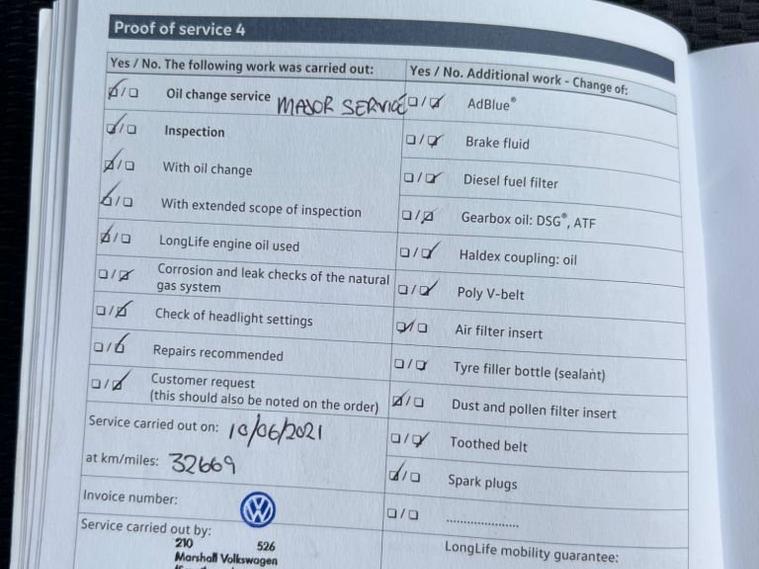 Proof of service 4
Yes / No. The following work was carried out:
Oil change service MAJOR SERVICE
Inspection
With oil change
With extended scope of inspection
LongLife engine oil used
Corrosion and leak checks of the natural
gas system
Check of headlight settings
Repairs recommended
Customer request
(this should also be noted on the order)
Service carried out on: 10/06/2021
at km/miles: 32669
Invoice number:
Service carried out by:
210 526
Marshall Volkswagen
Yes / No. Additional work - Change of:
AdBlue®
Brake fluid
Diesel fuel filter
Gearbox oil: DSG®, ATF
Haldex coupling: oil
Poly V-belt
Air filter insert
Tyre filler bottle (sealant)
Dust and pollen filter insert
Toothed belt
Spark plugs
LongLife mobility guarantee: